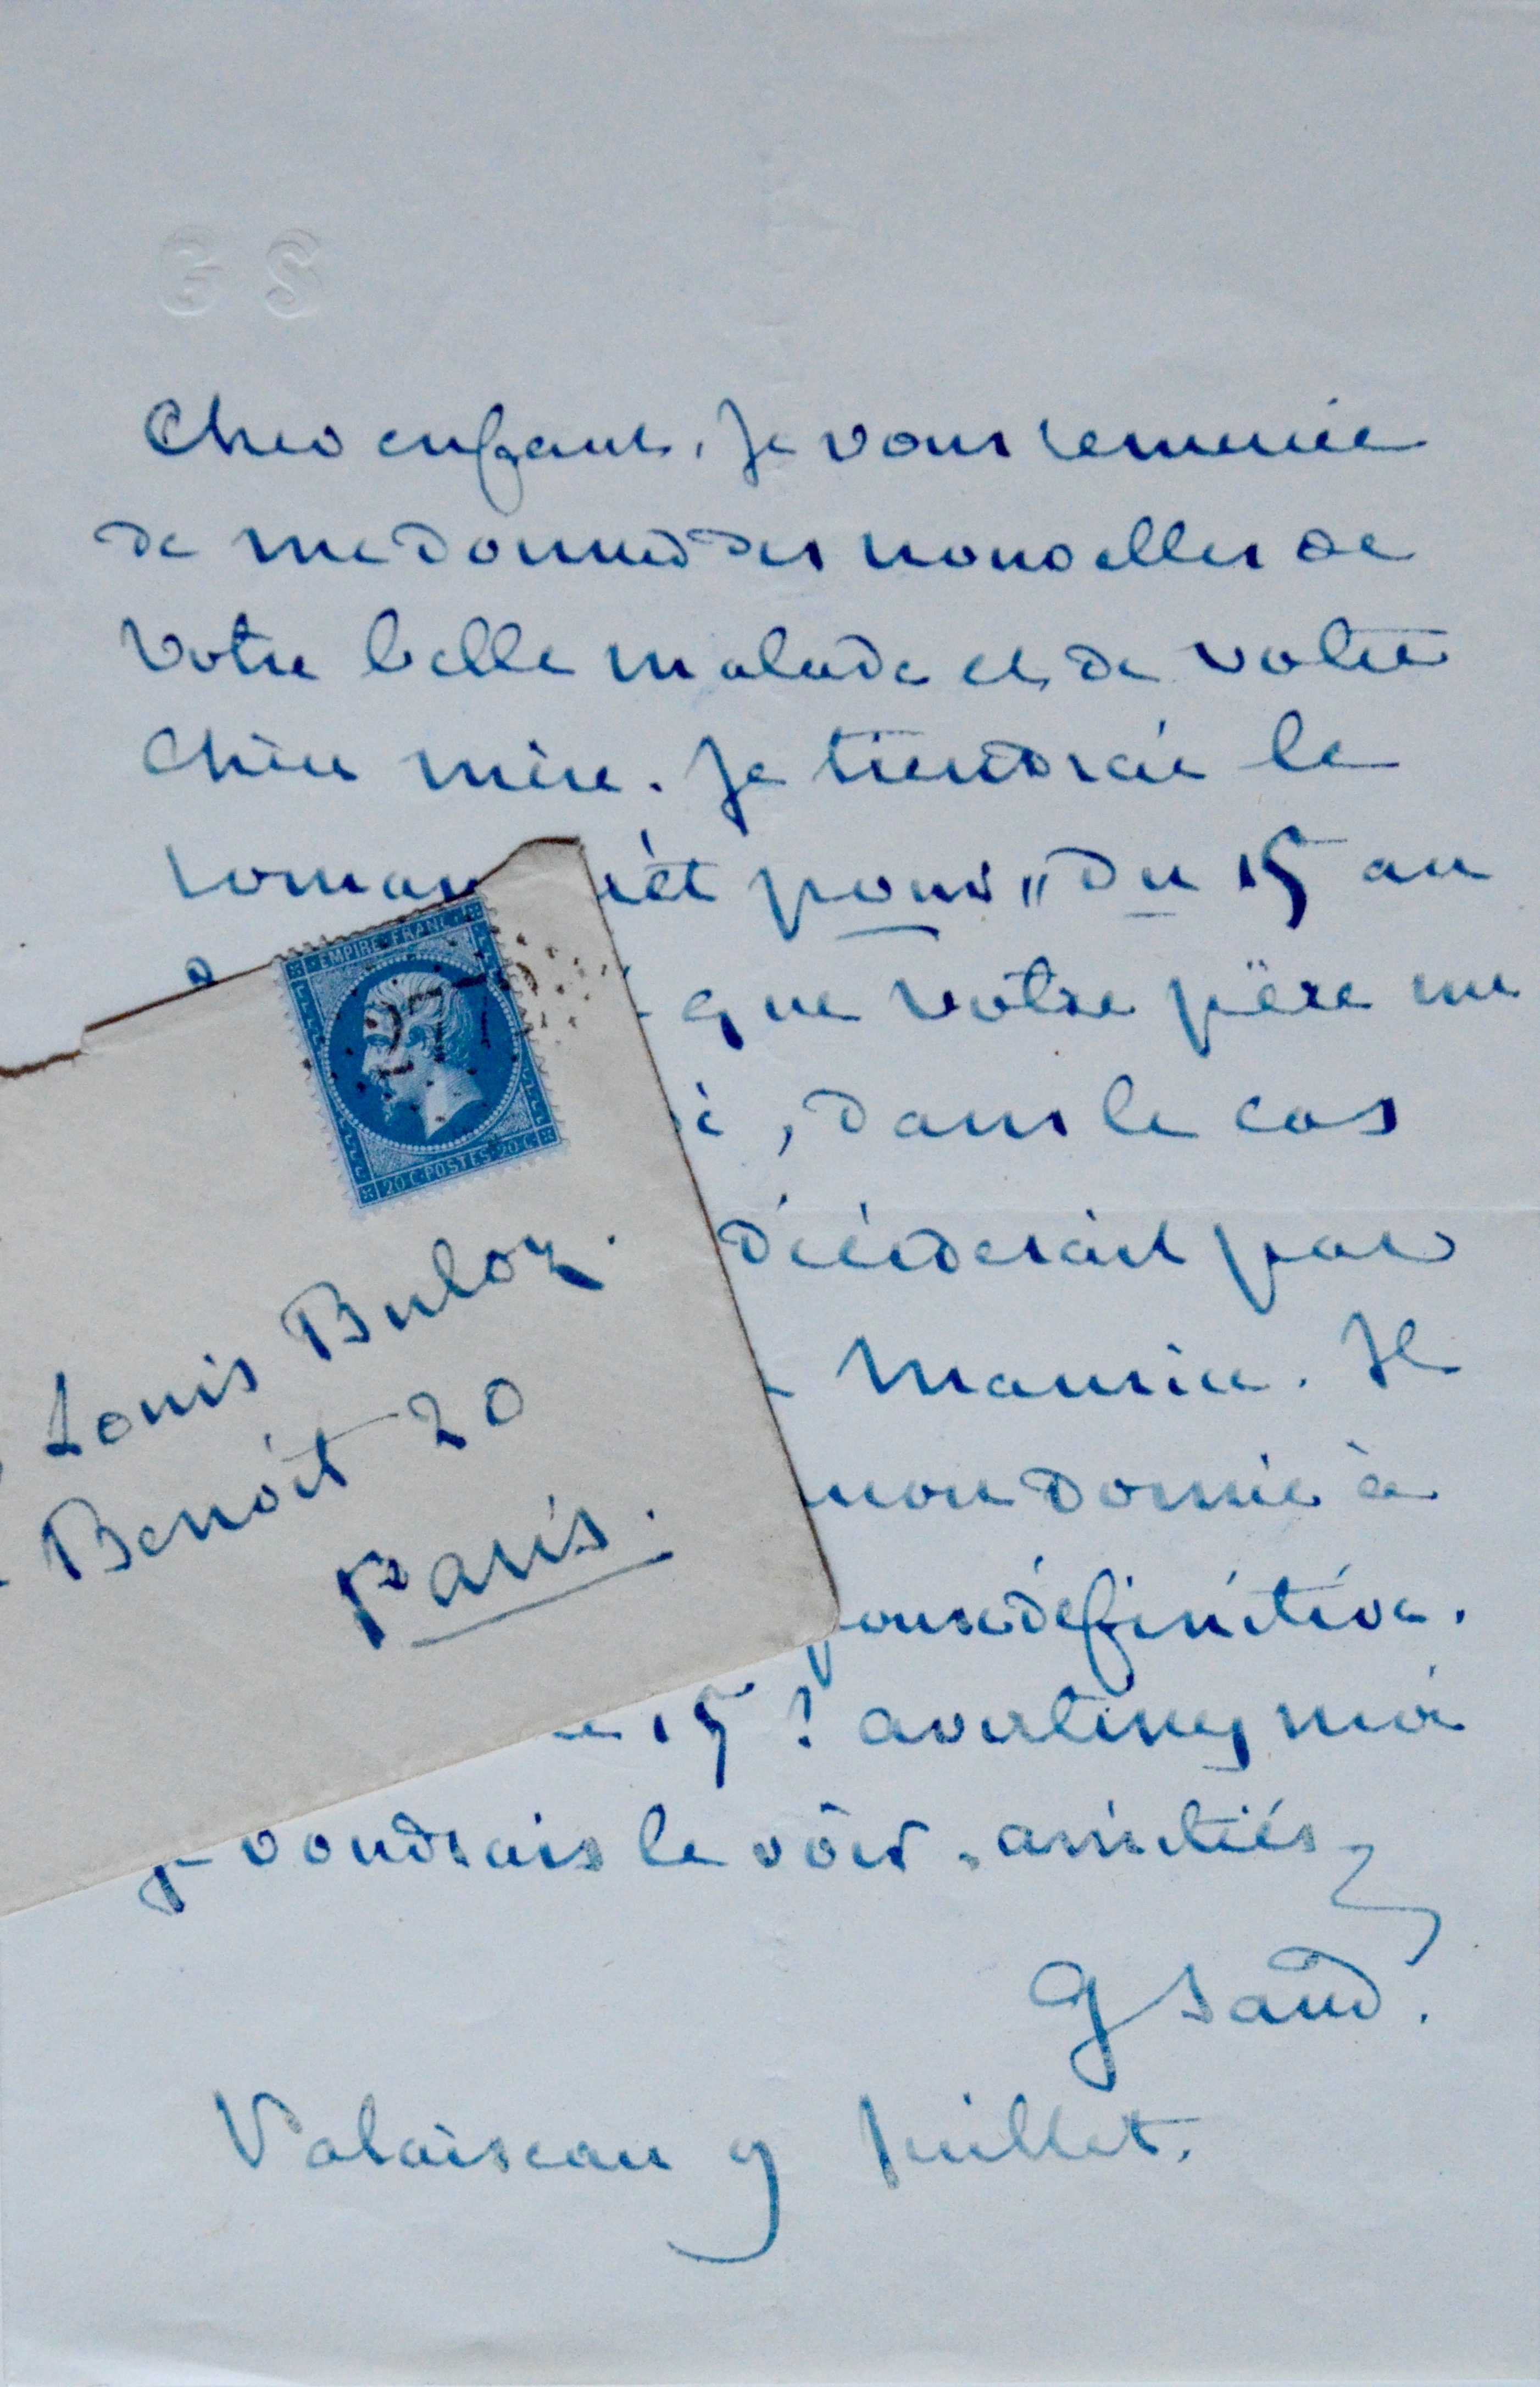 GS
Cher enfant, Je vous remercie
de me donner des nouvelles de
votre belle malade et de votre
chère mère. Je tiendrai le
roman prêt pour „ du 15 au
que votre père me
, dans le cas
déciderait pas
Maurice. Il
mon domic à
définitive.
15 ? avertissez moi
je voudrais le voir. amitiés
G Sand.
Palaiseau 9 juillet.
EMPIRE FRANC.
277
20 C. POSTES 20 C.
Louis Buloz.
Benoît 20
Paris.